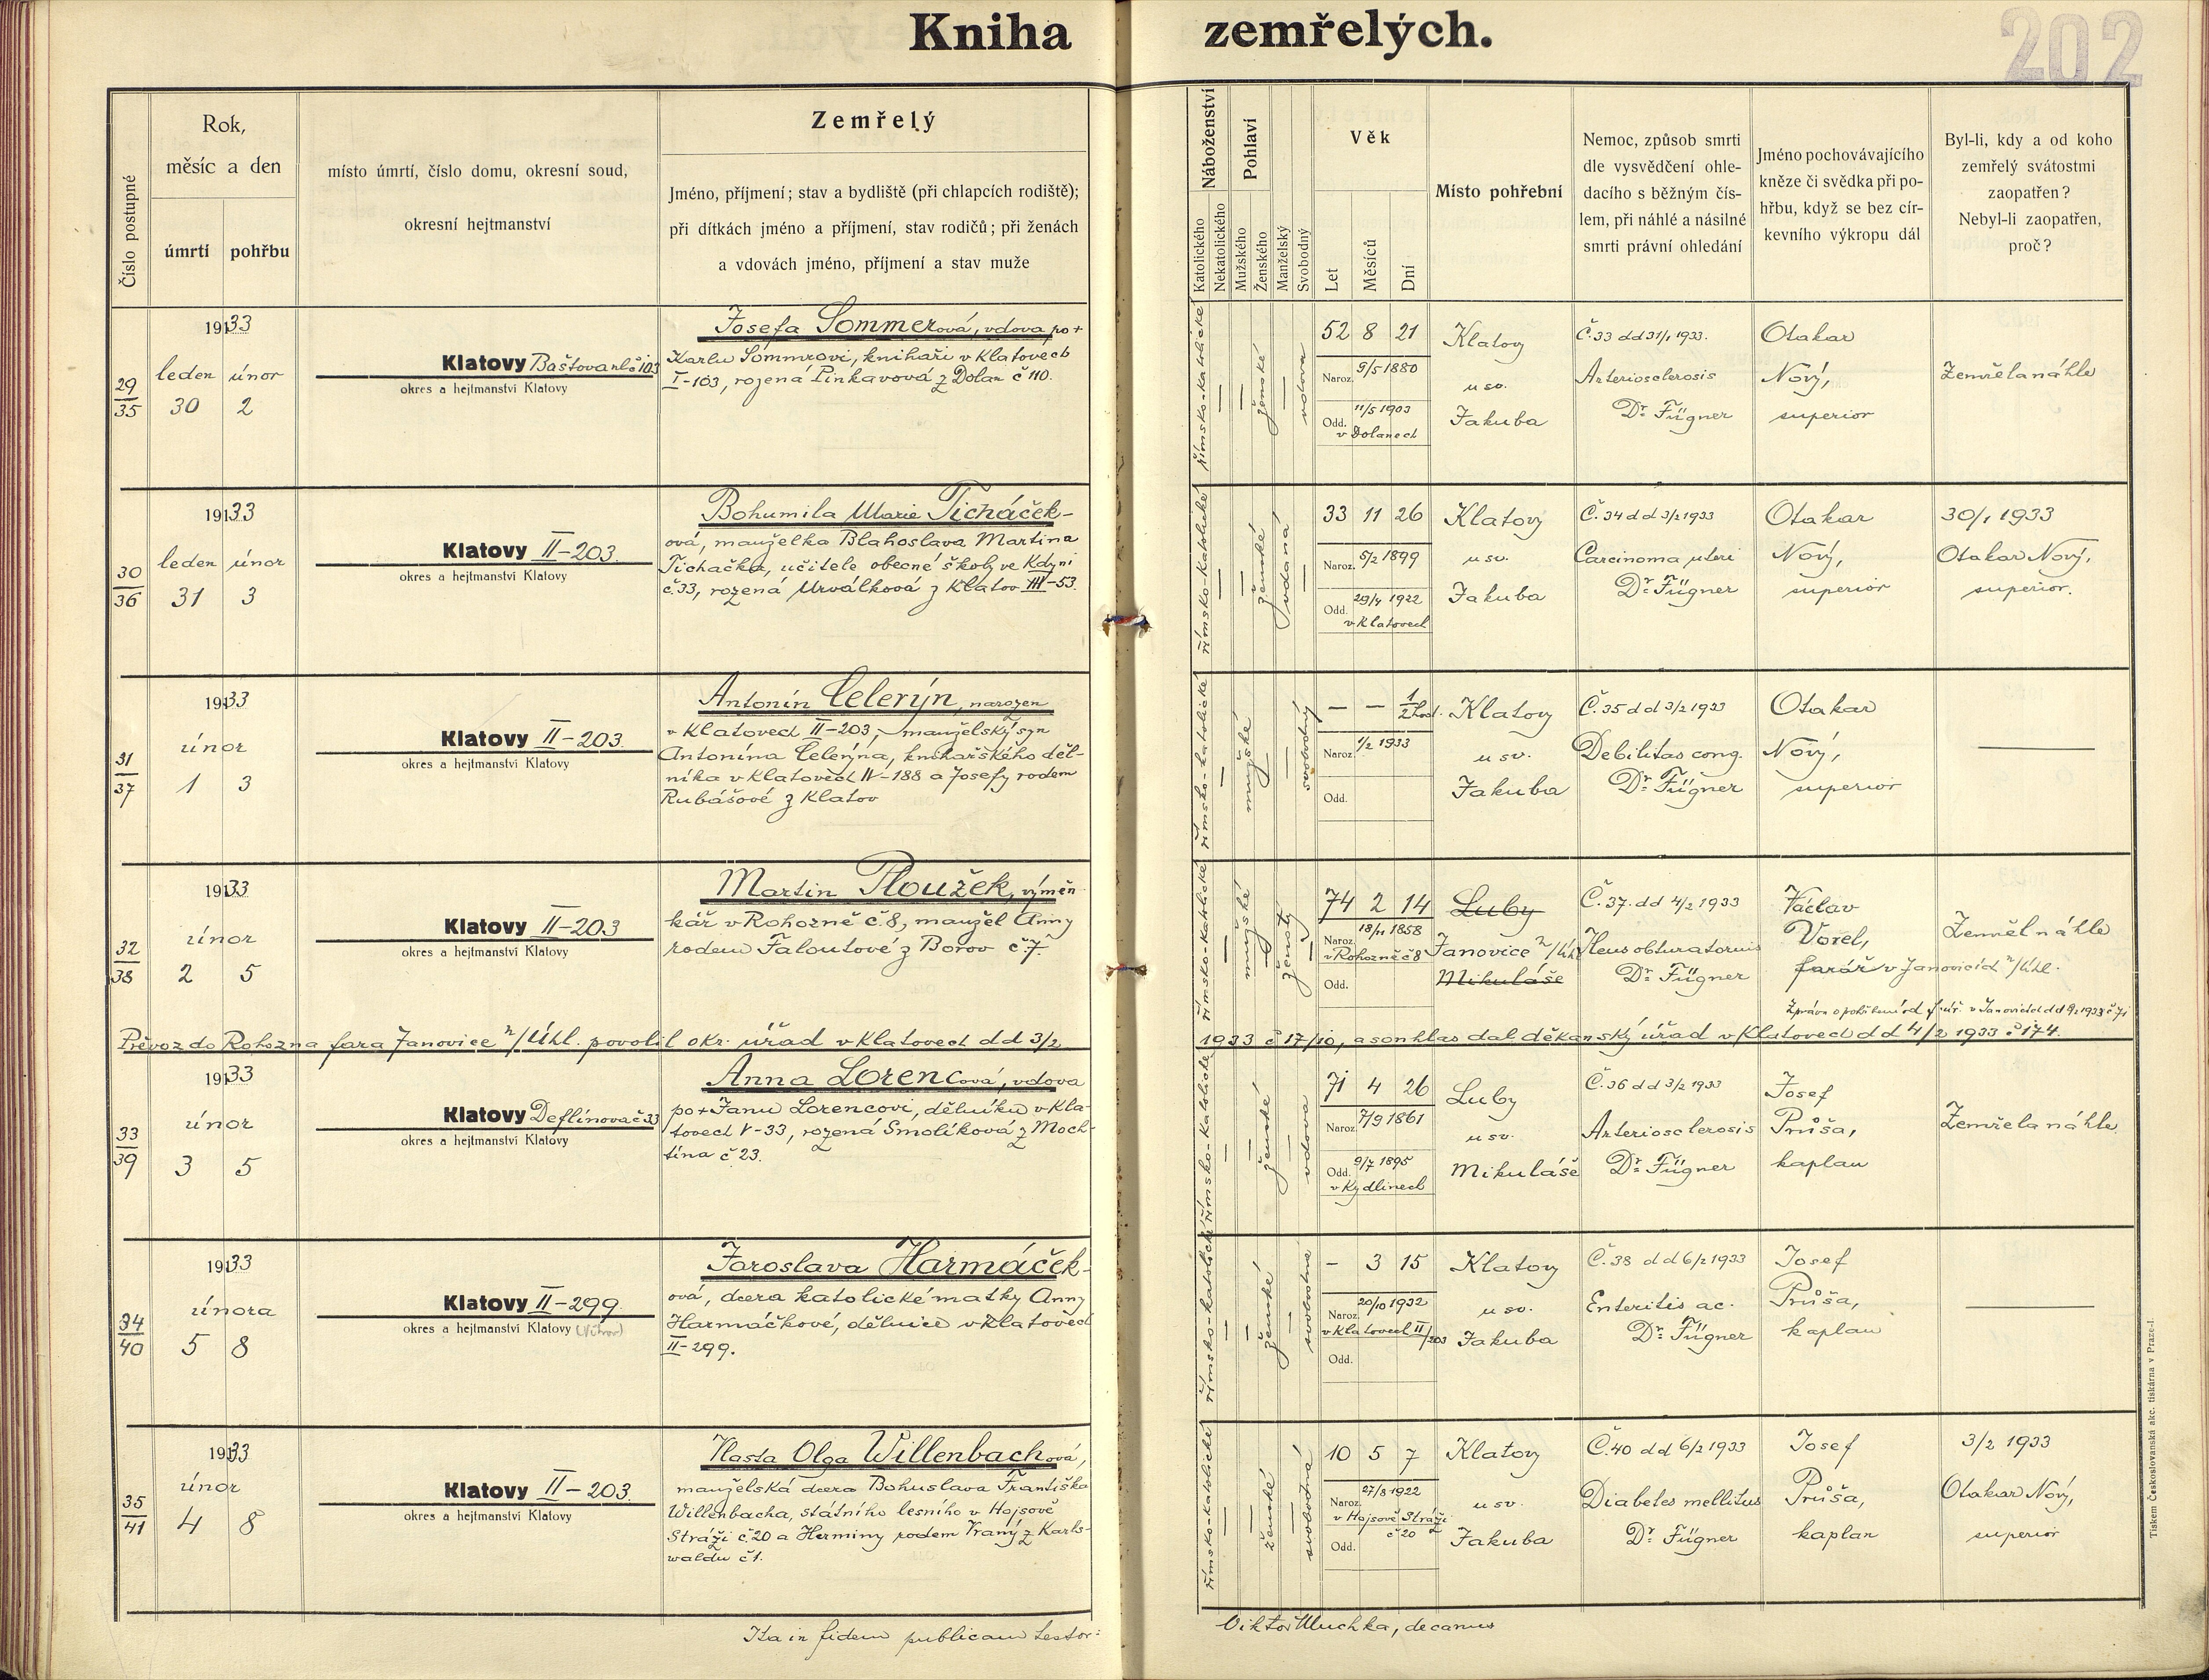 Kniha zemřelých.
202
Číslo postupné
Rok,
měsíc a den
úmrtí
pohřbu
místo úmrtí, číslo domu, okresní soud,
okresní hejtmanství
Zemřelý
Jméno, příjmení; stav a bydliště (při chlapcích rodiště);
při dítkách jméno a příjmení, stav rodičů; při ženách
a vdovách jméno, příjmení a stav muže
Náboženství
Katolického
Nekatolického
Pohlaví
Mužského
Ženského
Manželský
Svobodný
Věk
Let
Měsíců
Dní
Místo pohřební
Nemoc, způsob smrti
dle vysvědčení ohle-
dacího s běžným čís-
lem, při náhlé a násilné
smrti právní ohledání
Jméno pochovávajícího
kněze či svědka při po-
hřbu, když se bez cír-
kevního výkropu dál
Byl-li, kdy a od koho
zemřelý svátostmi
zaopatřen?
Nebyl-li zaopatřen,
proč?
29
35
1933
leden únor
30 2
Klatovy Baštova ul. č 103
okres a hejtmanství Klatovy
Josefa Sommerová, vdova po +
Karlu Sommrovi, knihaři v Klatovech
I-103, rozená Pinkavová z Dolan č 110.
římsko-katolické
ženské
vdova
52 8 21
Naroz. 9/5 1880
Odd. 11/5 1903
v Dolanech
Klatovy
u sv.
Jakuba
Č. 33 dd 31/1 1933.
Arteriosclerosis
Dr. Fügner
Otakar
Nový,
superior
Zemřela náhle
30
36
1933
leden únor
31 3
Klatovy II-203.
okres a hejtmanství Klatovy
Bohumila Marie Ticháček-
ová, manželka Blahoslava Martina
Ticháčka, učitele obecné školy ve Kdyni
č.33, rozená Urválková z Klatov III-53.
římsko-katolické
ženské
vdaná
33 11 26
Naroz. 5/2 1899
Odd. 29/4 1922
v Klatovech
Klatovy
u sv.
Jakuba
Č. 34 dd 3/2 1933
Carcinoma uteri
Dr. Fügner
Otakar
Nový,
superior
30/1 1933
Otakar Nový,
superior.
31
37
1933
únor
1 3
Klatovy II-203.
okres a hejtmanství Klatovy
Antonín Celerýn, narozen
v Klatovech II-203, manželský syn
Antonína Celerýna, knihařského děl-
níka v Klatovech IV-188 a Josefy rodem
Rubášové z Klatov
římsko-katolické
mužské
svobodný
— — 1/2 hod.
Naroz. 1/2 1933
Odd.
Klatovy
u sv.
Jakuba
Č. 35 dd 3/2 1933
Debilitas cong.
Dr. Fügner
Otakar
Nový,
superior
32
38
1933
únor
2 5
Klatovy II-203
okres a hejtmanství Klatovy
Martin Ploužek, výměn-
kář v Rohozně č.8, manžel Anny
rodem Faloutové z Borov č.7.
římsko-katolické
mužské
ženatý
74 2 14
Naroz. 18/11 1858
v Rohozně č 8
Odd.
Luby
Janovice n/Úhl
Mikuláše
Č. 37. dd 4/2 1933
Ileus obturatorius
Dr. Fügner
Václav
Vorel,
farář v Janovicích n/Úhl.
Zemřel náhle
Zpráva o pohřbení od far. úř. v Janovicích dd 9/2 1933 č 71
Převoz do Rohozna fara Janovice n/Úhl. povolil okr. úřad v Klatovech dd 3/2
1933 č 17/10, a souhlas dal děkanský úřad v Klatovech dd 4/2 1933 č 174.
33
39
1933
únor
3 5
Klatovy Deflínova č 33
okres a hejtmanství Klatovy
Anna Lorencová, vdova
po + Janu Lorencovi, dělníku v Kla-
tovech V-33, rozená Smolíková z Moch-
tína č 23.
římsko-katolické
ženské
vdova
71 4 26
Naroz. 7/9 1861
Odd. 9/7 1895
v Kydlinech
Luby
u sv.
Mikuláše
Č. 36 dd 3/2 1933
Arteriosclerosis
Dr. Fügner
Josef
Průša,
kaplan
Zemřela náhle
34
40
1933
února
5 8
Klatovy II-299.
okres a hejtmanství Klatovy
Jaroslava Harmáček-
ová, dcera katolické matky Anny
Harmáčkové, dělnice v Klatovech
II-299.
římsko-katolické
ženské
svobodná
— 3 15
Naroz. 20/10 1932
v Klatovech II/203
Odd.
Klatovy
u sv.
Jakuba
Č. 38 dd 6/2 1933
Enteritis ac.
Dr. Fügner
Josef
Průša,
kaplan
35
41
1933
únor
4 8
Klatovy II-203.
okres a hejtmanství Klatovy
Vlasta Olga Willenbachová,
manželská dcera Bohuslava Františka
Willenbacha, státního lesního v Hojsově
Stráži č.20 a Herminy rodem Vraný z Karls-
waldu č 1.
římsko-katolické
ženské
svobodná
10 5 7
Naroz. 27/8 1922
v Hojsově Stráži
č 20
Odd.
Klatovy
u sv.
Jakuba
Č. 40 dd 6/2 1933
Diabetes mellitus
Dr. Fügner
Josef
Průša,
kaplan
3/2 1933
Otakar Nový,
superior
Ita in fidem publicam testor:
Viktor Muchka, decanus
Tiskem Československá akc. tiskárna v Praze-I.